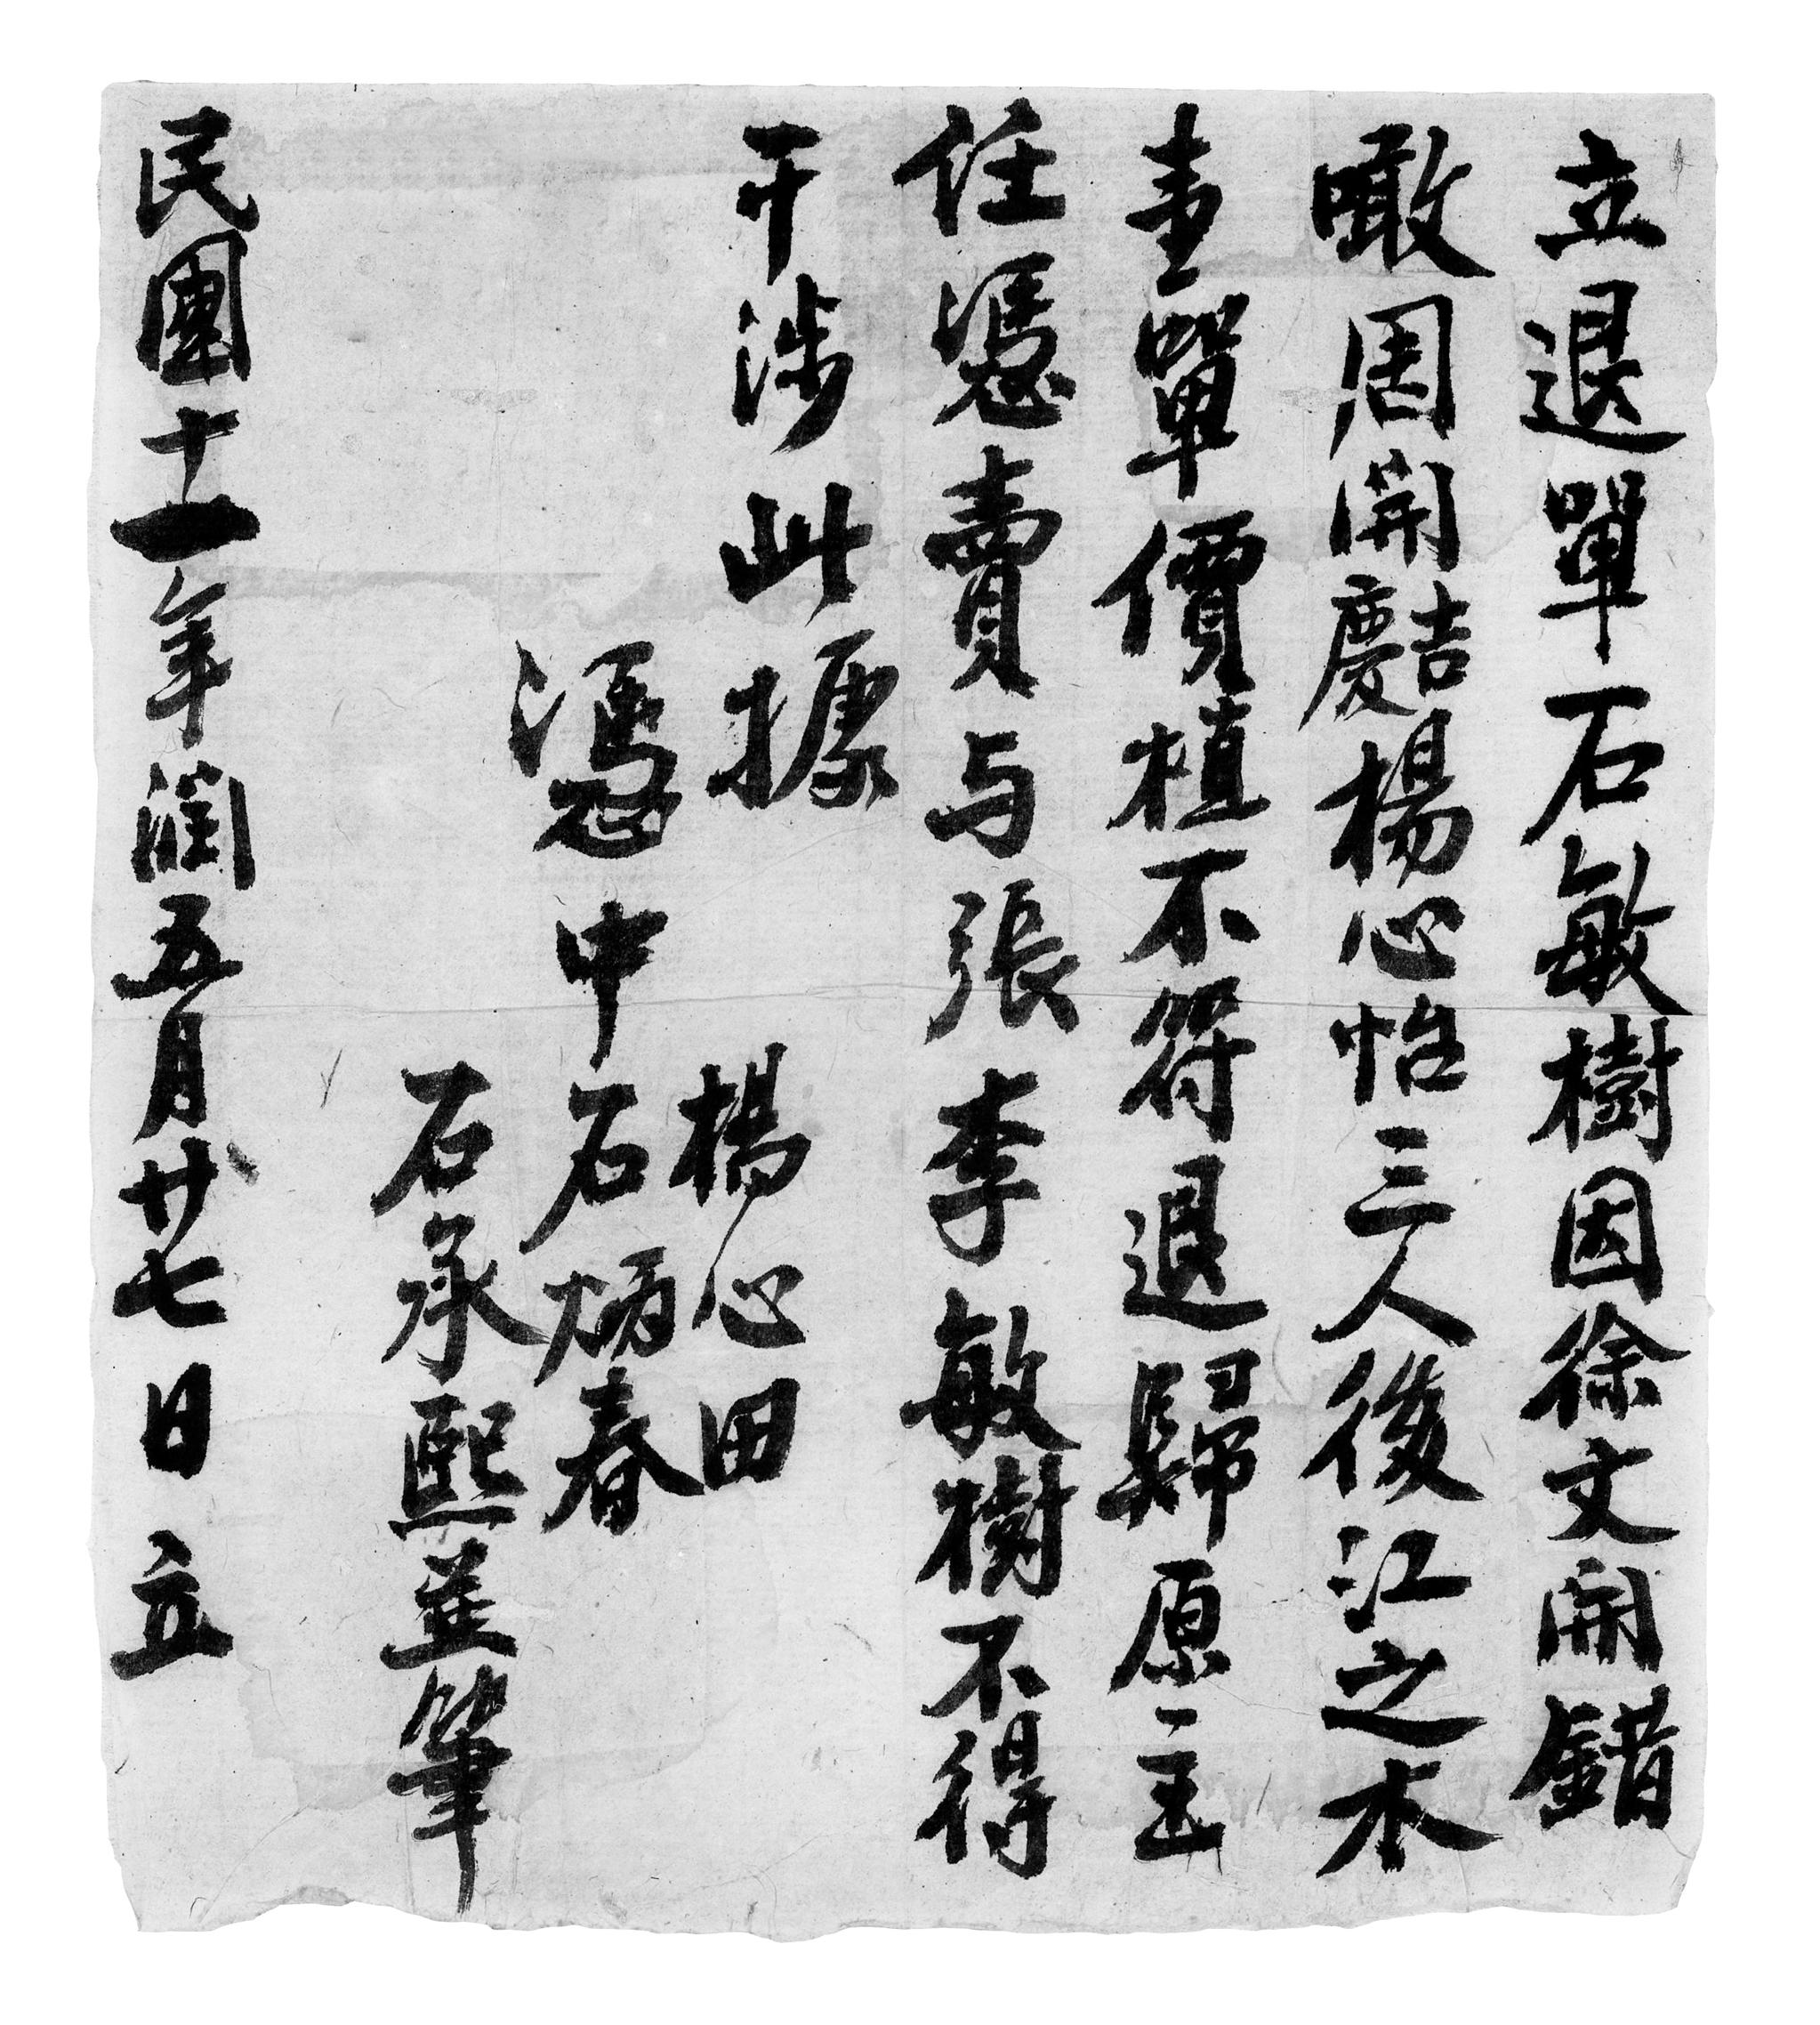 立退單石敏樹因徐文開錯
瞰周開吉慶楊心怡三人後江之木
單價植不符退歸原主
任憑賣与張李敏樹不得
干涉此據
楊心田
憑中石炳春
石承熙並筆
民國十一年潤五月廿七日立